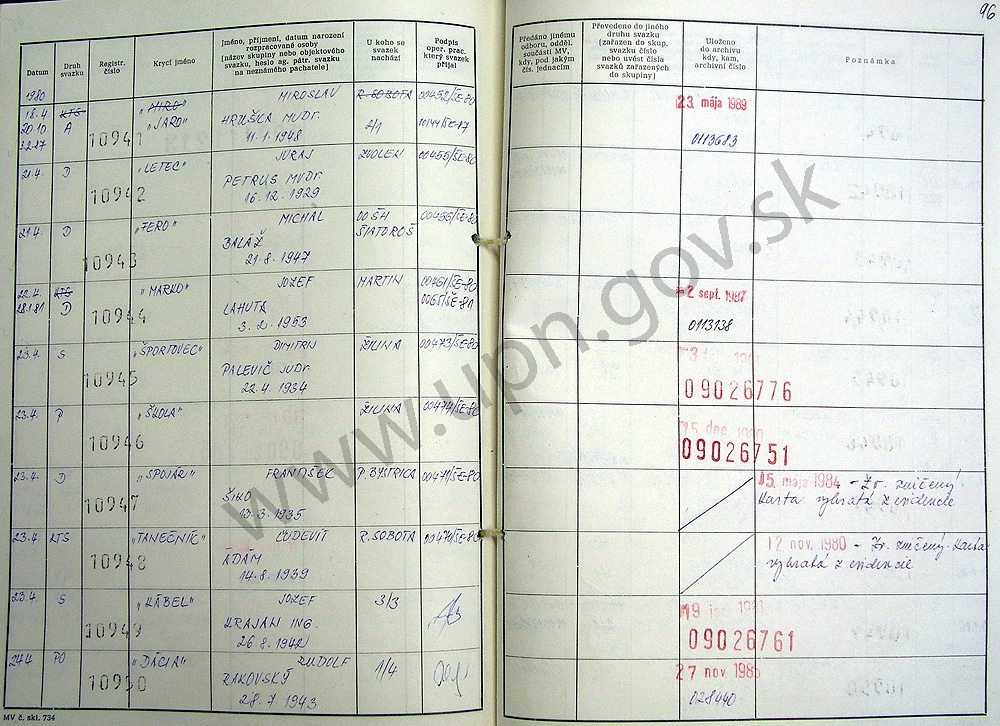 96
Datum
Druh svazku
Registr. číslo
Krycí jméno
Jméno, příjmení, datum narození
rozpracované osoby
(název skupiny nebo objektového
svazku, heslo ag. pátr. svazku
na neznámého pachatele)
U koho se
svazek
nachází
Podpis
oper. prac.
který svazek
přijal
Předáno jinému
odboru, odděl.
součásti MV,
kdy, pod jakým
čís. jednacím
Převedeno do jiného
druhu svazku
(zařazen do skup.
svazku číslo
nebo uvést čísla
svazků zařazených
do skupiny)
Uloženo
do archivu
kdy, kam,
archivní číslo
Poznámka
1980
18.4. KTS "MIRO" MIROSLAV R. SOBOTA 00452/ŠE-80 23. mája 1989
20.10. A 10941 "JARO" HRUŠKA MUDr. 2/1 00144/ŠE-87
11.1.1948 0113683
21.4. D 10942 "LETEC" JURAJ ZVOLEN 00455/ŠE-80
PETRUS MVDr.
16.12.1929
21.4. D 10943 "FERO" MICHAL OO ŠH 00456/ŠE-80
BALÁŽ ŠIATOROŠ
21.8.1947
22.4. KTS "MARKO" JOZEF MARTIN 00461/ŠE-80 2. sept. 1987
28.1.81 D 10944 LAHUTA 0065/ŠE-81
3.2.1953 0113138
23.4. S 10945 "ŠPORTOVEC" DIMITRIJ ŽILINA 00473/ŠE-80
PALEVIČ JUDr.
22.4.1934 09026776
23.4. P 10946 "ŠKOLA" ŽILINA 00474/ŠE-80 15. dec. 1980
09026751
23.4. D 10947 "SPOJÁR" FRANTIŠEK P. BYSTRICA 00471/ŠE-80 15. mája 1984 - Zv. zničený.
ŠIKO Karta vybratá z evidencie
13.3.1935
23.4. KTS 10948 "TANEČNÍK" ĽUDEVÍT R. SOBOTA 00470/ŠE-80 12 nov. 1980 - Zv. zničený. Karta
ÁDÁM vybratá z evidencie
14.8.1939
23.4. S 10949 "KÁBEL" JOZEF 3/3
KRAJAN ING.
26.8.1942 09026761
24.4. PO 10950 "DÁCIA" RUDOLF 1/4 27 nov 1985
RAKOVSKÝ
28.7.1943 028440
MV č. skl. 734
www.upn.gov.sk